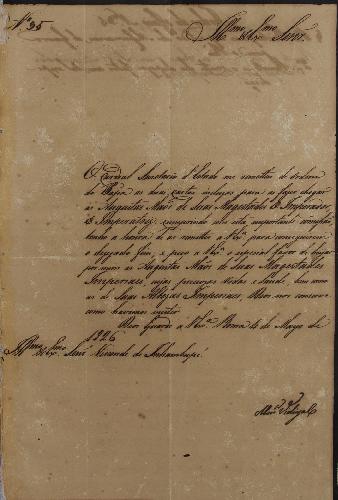 Nº 35
Illmo e Exmo Senr
O Cardeal Secretario d'Estado me remetteo de ordem
do Papa as duas cartas inclusas para as fazer chegar
ás Augustas Maõs de Suas Magestades O Imperador,
e Imperatriz; cumprindo esta importante commissão
tenho a honra de as remetter a V Exa para conseguirem
o dezejado fim, e peço a V Exa o especial favor de beijar
por mim as Augustas Maõs de Suas Magestades
Imperiaes, cujas preciosas Vidas e Saude, bem como
as de Suas Altezas Imperiaes, Deos nos conserve
como havemos mister
Deos Guarde a V Exa Roma 4 de Mayo de
1826
Illmo e Exmo Senr Visconde de Inhambupe
Monsr Vidigal